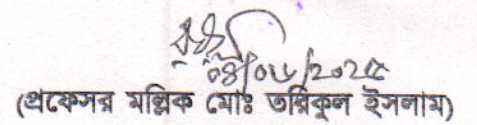 ০৪/০৬/২০২৫
(প্রফেসর মল্লিক মোঃ তরিকুল ইসলাম)